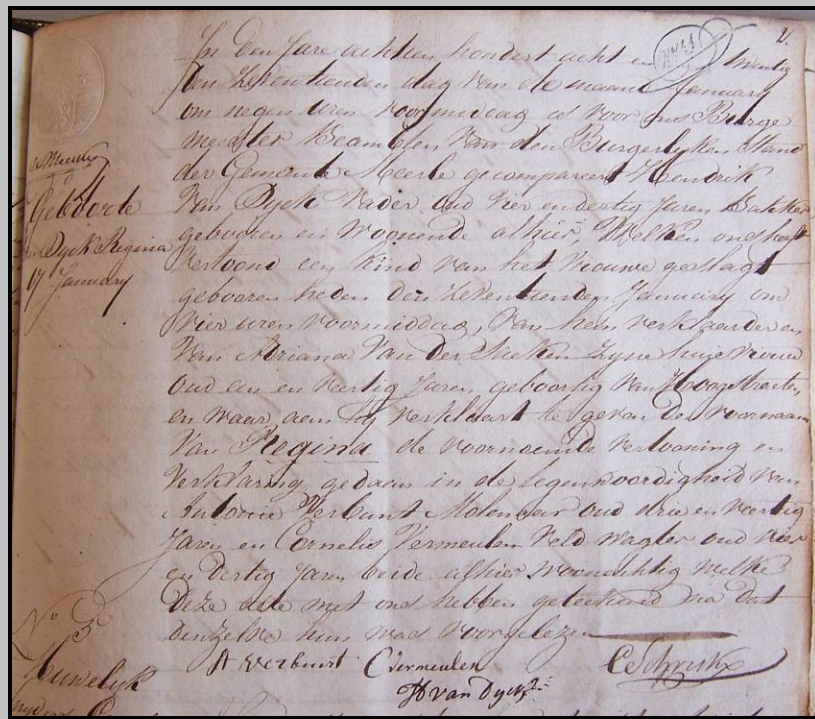 2.
In den Jare achtien hondert acht en twintig
den zeventienden dag van de maand January
om negen uren voormiddag is voor ons Burge
meester Beambten van den Burgerlyken Stand
der Gemeente Meerle gecompareert Hendrik
Van Dyck Vader oud vier endertig Jaren Bakker
geboren en Woonende alhier, Welken ons heeft
vertoond een Kind van het Vrouwe geslagt
gebooren heden den zeventienden January om
vier uren voormiddag, van hem verklaarder en
Van Adriana Van der Sacken zyne huisvrouw
oud een en veertig Jaren geboortig van Hoogstraeten
en waar aen hy verklaart te geven de voornaam
Van Regina de voornoemde vertooning en
verklaring gedaen in de tegenwoordigheid van
Antonie Verbunt Molenaar oud drie en veertig
Jaren en Cornelis Vermeulen Veld wagter oud vier
en dertig Jaren beide alhier woonachtig welke
deze acte met ons hebben geteekend na dat
denzelve hun was voorgelezen
A Verbunt C Vermeulen
H van Dyck
Geboorte
Van Dyck Regina
17 January
No 3
Huwelyk